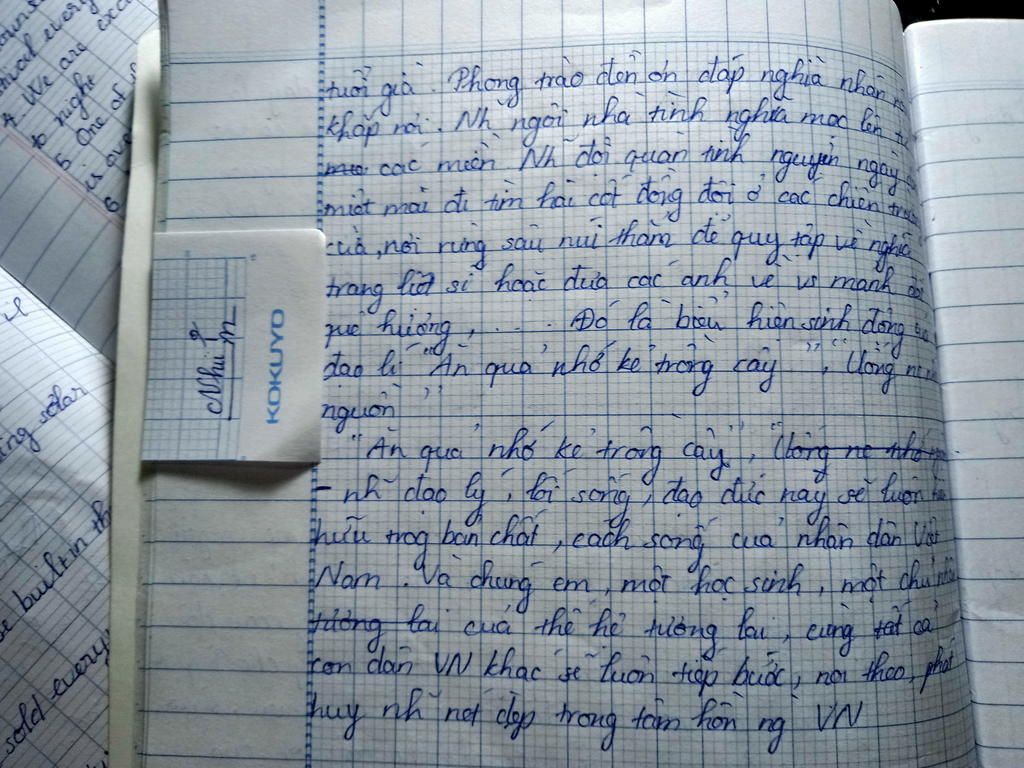 We are exc
to night
5 One of
6 is ove
ing solar
e built in th
sold every
Nhung
KOKUYO
tuổi già. Phong trào đền ơn đáp nghĩa nhân
khắp nơi. Nh~ ngôi nhà tình nghĩa mọc lên
các miền Nh~ đội quân tình nguyện ngày
miệt mài đi tìm hài cốt đồng đội ở các chiến
cũ, nơi rừng sâu núi thẳm để quy tập về nghĩa
trang liệt sĩ hoặc đưa các anh về vs mảnh đất
quê hương, .... Đó là biểu hiện sinh động
đạo lí "Ăn quả nhớ kẻ trồng cây", "Uống
nguồn"
"Ăn quả nhớ kẻ trồng cây", "Uống nc nhớ
- nh~ đạo lý, lối sống, đạo đức này sẽ luôn
hữu trog bản chất, cách sống của nhân dân Việt
Nam. Và chúng em, một học sinh, một chủ nhân
tương lai của thế hệ tương lai, cùng tất cả
con dân VN khác sẽ luôn tiếp bước, noi theo, phát
huy nh~ nét đẹp trong tâm hồn ng VN